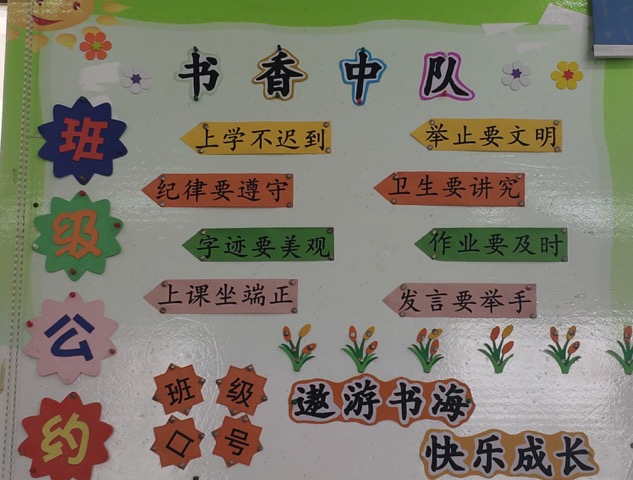 书香中队
班级公约
上学不迟到
举止要文明
纪律要遵守
卫生要讲究
字迹要美观
作业要及时
上课坐端正
发言要举手
班级
口号
遨游书海
快乐成长